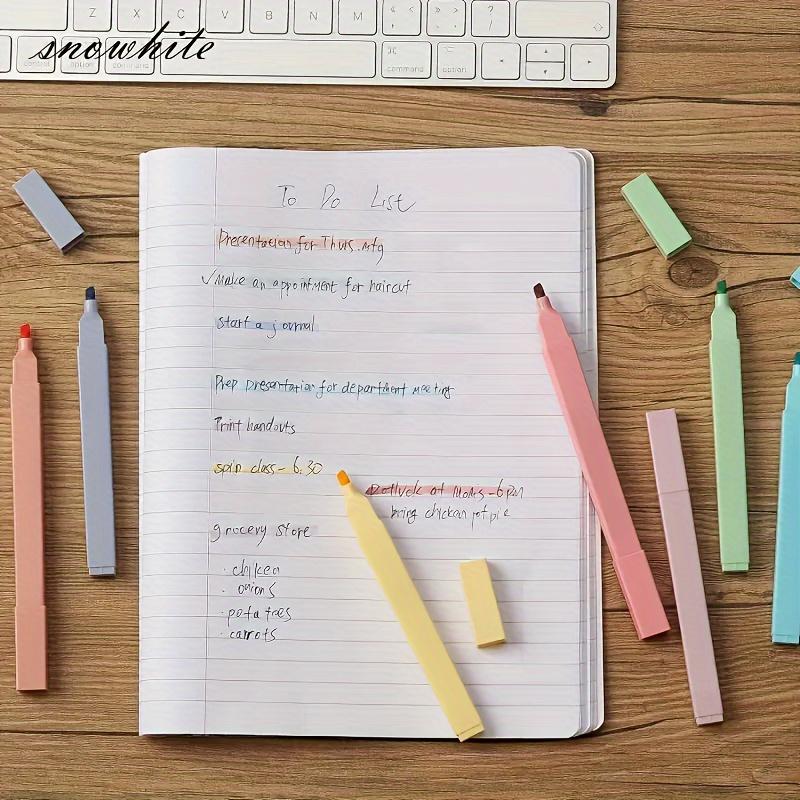 Z X C V B N M
snowhite
control option command command option
To Do List
Presentation for Thurs. mtg
✓Make an appointment for haircut
start a journal
Prep presentation for department meeting
Print handouts
spin class - 6:30
Potluck at Moms - 6pm
bring chicken pot pie
grocery store
· chicken
· onions
· potatoes
· carrots